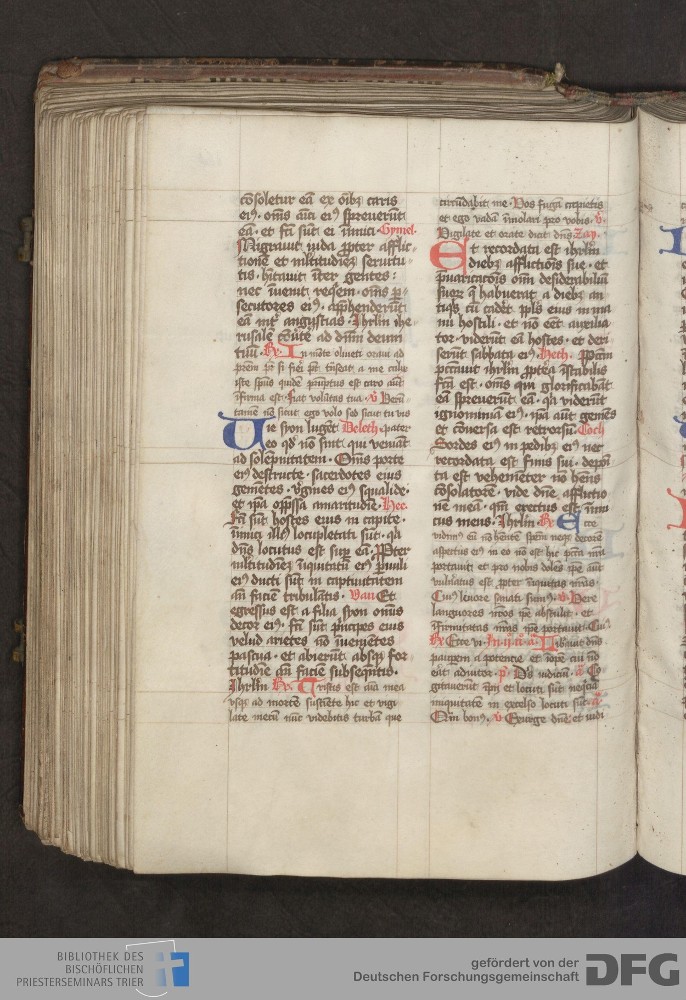 cōsoletur eā ex oīb9 caris
ei9. oms aīci ei9 sp̄reuerūt
eā. et fcī sūt ei inīmici. Gymel.
Migrauit iuda ꝓpter afflic
tionē et mltitudinē seruitu
tis. hītauit īter gentes:
nec īuenit reqēm. oms ꝑ
secutores ei9. app̄henderūt
eā inť angustias. Jhrlm̄ ihe
rusalē cōūtē ad dn̄m deum
tuū. Rx. In mōte oliueti oraui ad
prēm pr̄ si fieī pōt trāseat a me calix
iste sp̄us quidē prūptus est caro aūt
īfirma est. fiat volūtas tua. v Verū
tamē nō sicut ego volo sed sicut tu vis
Uie syon lugēt Deleth. pater
eo qd̄ nō sint qui veniāt
ad solēpnitatem. Oms porte
ei9 destructe. sacerdotes eius
gemētes. v̄gines ei9 squalide.
et ip̄a opp̄ssa amaritudīe. Hee.
Fcī sūt hostes eius in capite.
inīmici illi9 locupletati sūt. qā
dn̄s locutus est suꝑ eā. ꝓPter
mltitudinē īiquitatū ei9 ꝑuuli
ei9 ducti sūt in captiuitatem
añ faciē tribulātis. Vau Et
egressus est a filia syon omīs
decor ei9. fcī sūt prīcipes eius
velud arietes nō īuenīetes
pascua. et abierūt absqꝫ for
titudīe añ faciē subseqntis.
Jhrlm̄ Rx. Tristis est aīa mea
vsqꝫ ad mortē sustinete hic et vigi
late mecū nūc videbitis turbā que
circūdabit me. Vos fugā capietis
et ego vadā īmolari pro vobis. v.
Vigilate et orate dicit dn̄s Zay.
Et recordata est ihrlm̄
dieb9 afflictiōis sue. et
p̄uaricatōis om̄i desiderabiliū
suoꝝ q̄ habuerat a dieb9 an
tiqs cū cadēt ppl̄s eius in ma
nu hostili. et nō eēt auxilia
tor. viderūt eā hostes. et deri
serūt sabbata ei9. Heth. Pccm̄
peccauit ihrlm̄ ꝓptea īstabilis
fcā est. oms qui glorificabāt
eā sp̄reuerūt eā. qā viderūt
ignominiā ei9. ip̄a aūt gemēs
et cōuersa est retrorsū. Teth
Sordes ei9 in pedib9 ei9 nec
recordata est finis sui. depōi
ta est vehemēter nō hn̄s
cōsolatorē. vide dn̄e afflictio
nē meā. qm̄ erectus est inīm
cus meus. Jhrlm̄ Rx Ecce
vidim9 eū nō hn̄tē sp̄em neqꝫ decorē
aspectus ei9 in eo nō est hic pccā nrā
portauit et pro nobis dolet ip̄e aūt
vulnatus est ꝓpter īiquitas nrās
Cui9 liuore sanati sum9. v. Vere
langwores nr̄os ip̄e abstulit. et
īfirmitates nrās ip̄e portauit. Cui9
Rx Ecce vi. In ij. n. a. Lib̄auit dn̄s
paupem a potente et inopē cui nō
erat adiutor. p. Ds iudiciū. a. Co
gitauerūt īpii et locuti sūt neqciā
iniquitatē in excelso locuti sūt. a
Qm̄ bon9. v Exurge dn̄e et iudi
BIBLIOTHEK DES
BISCHÖFLICHEN
PRIESTERSEMINARS TRIER
gefördert von der
Deutschen Forschungsgemeinschaft
DFG